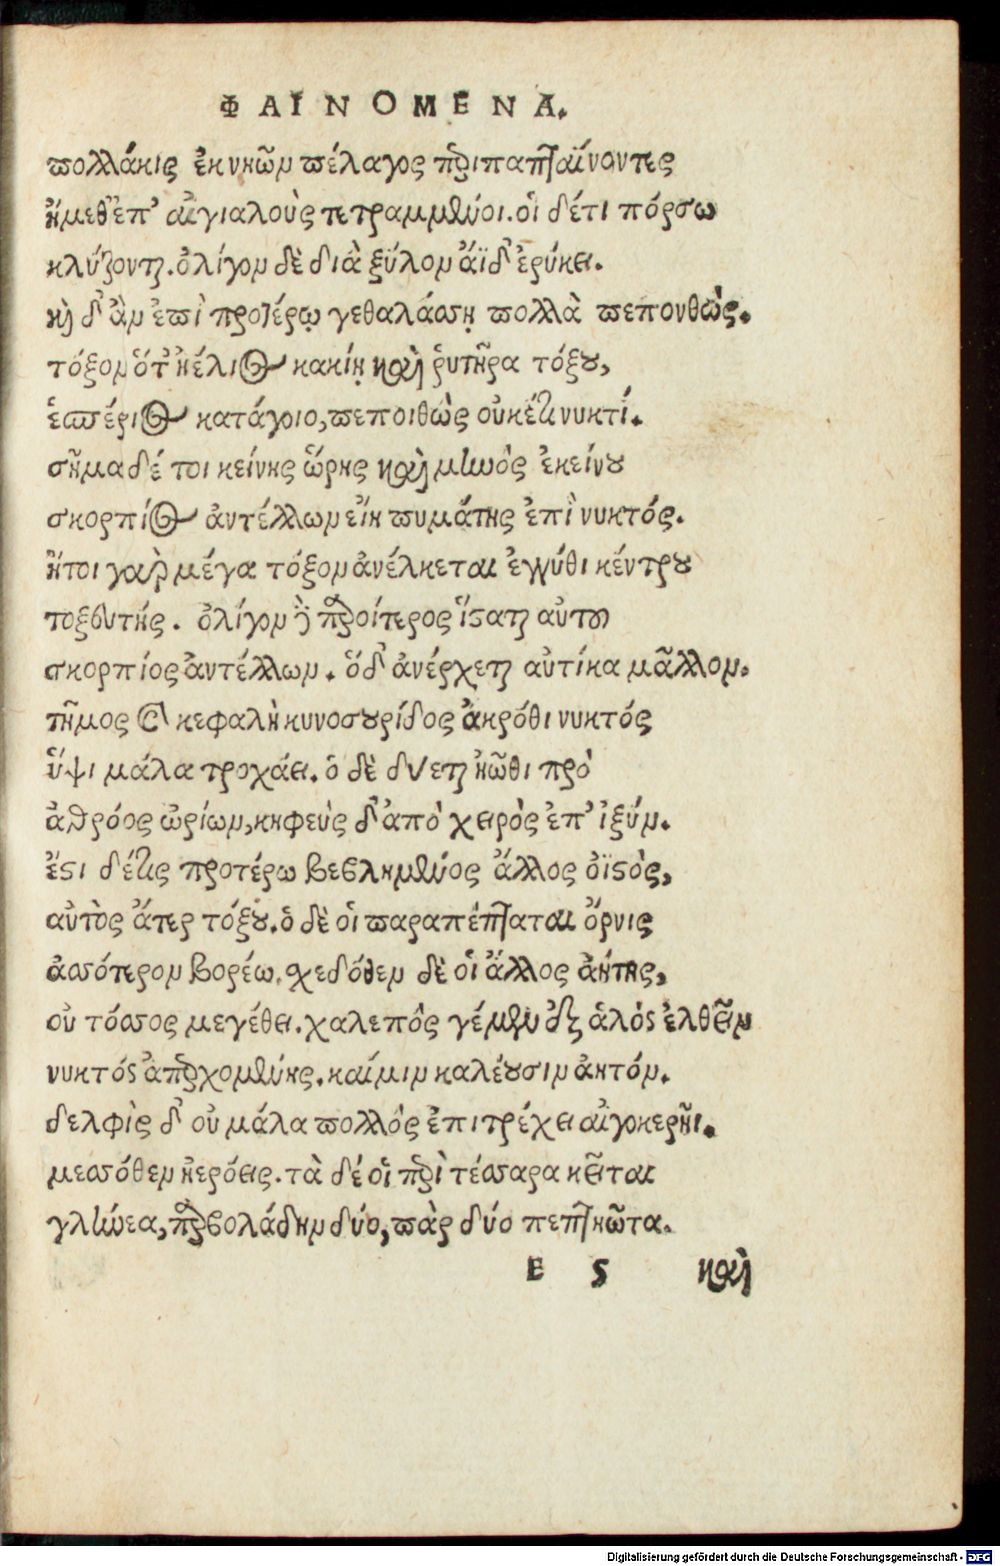 ΦΑΙΝΟΜΕΝΑ.
πολλάκις ἐκ νηῶν πέλαγος περιπαπταίνοντες
ἥμεθ' ἐπ' αἰγιαλοὺς τετραμμένοι. οἱ δ' έτι πόρσω
κλύζονται. ὀλίγον δὲ διὰ ξύλον ἄϊδ' ἐρύκει.
καὶ δ' ἂν ἐπὶ προτέρῳ γε θαλάσσῃ πολλὰ πεπονθὼς.
τόξον ὅτ' ἠέλιος κακίῃ καὶ ῥυτῆρα τόξου,
ἑσπέριος κατάγοιο, πεποιθὼς οὐκέτι νυκτί.
σῆμα δέ τοι κείνης ὥρης καὶ μηνὸς ἐκείνου
σκορπίος ἀντέλλων εἴη πυμάτης ἐπὶ νυκτός.
ἤτοι γὰρ μέγα τόξον ἀνέλκεται ἐγγύθι κέντρου
τοξευτής. ὀλίγον δὲ παροίτερος ἵσταται αὐτοῦ
σκορπίος ἀντέλλων. ὅδ' ἀνέρχεται αὐτίκα μᾶλλον.
τῆμος καὶ κεφαλὴ κυνοσουρίδος ἀκρόθι νυκτός
ὕψι μάλα τροχάει. ὁ δὲ δύεται ἠῶθι πρὸ
ἀθρόος ὠρίων, κηφεὺς δ' ἀπὸ χειρὸς ἐπ' ἰξύν.
ἔστι δέ τις προτέρω βεβλημένος ἄλλος ὀϊστὸς,
αὐτὸς ἄτερ τόξου. ὁ δὲ οἱ παραπέπταται ὄρνις
ἀσσότερον βορέω. σχεδόθεν δὲ οἱ ἄλλος ἀήτης,
οὐ τόσσος μεγέθει. χαλεπὸς γέ μὲν ἐξ ἁλὸς ἐλθεῖν
νυκτὸς ἀπερχομένης. καί μιν καλέουσιν ἀητόν.
δελφὶς δ' οὐ μάλα πολλὸς ἐπιτρέχει αἰγοκερῆι.
μεσσόθεν ἠερόεις. τὰ δέ οἱ περὶ τέσσαρα κεῖται
γλήνεα, παρβολάδην δύο, πὰρ δύο πεπτηῶτα.
E 5 καὶ
Digitalisierung gefördert durch die Deutsche Forschungsgemeinschaft - DFG